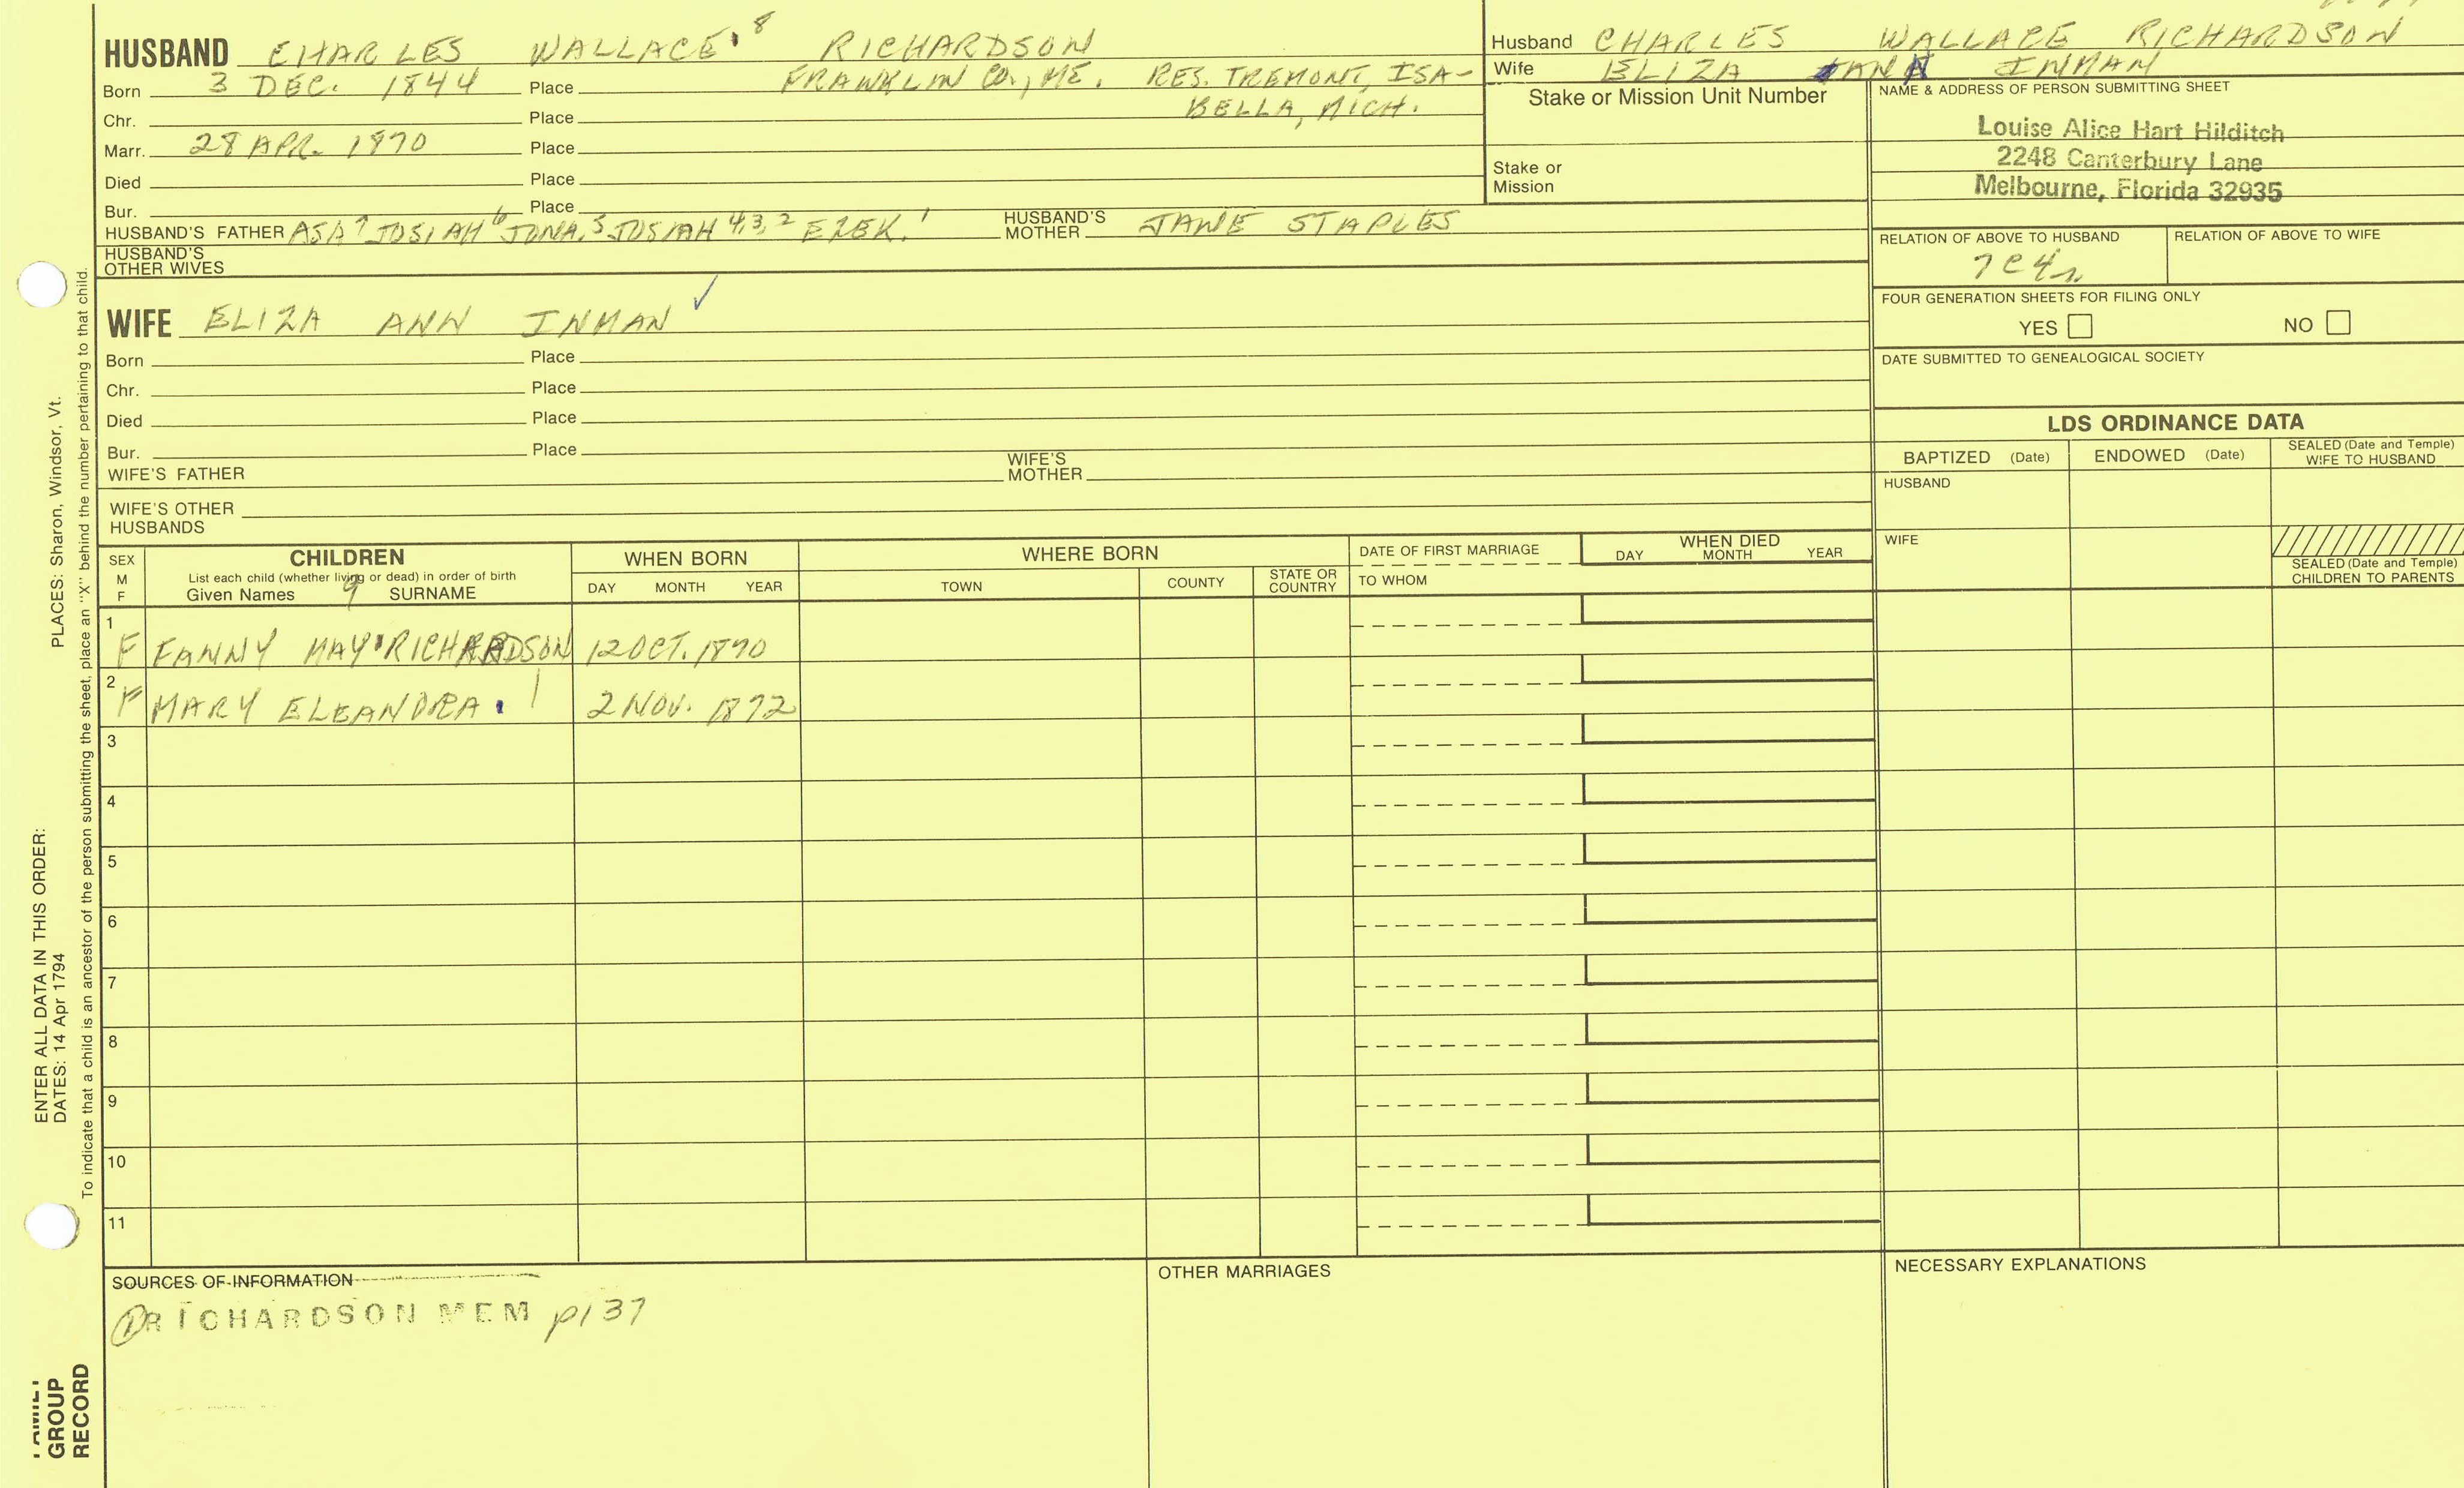 HUSBAND CHARLES WALLACE 8 RICHARDSON
Born 3 DEC. 1844 Place FRANKLIN CO., ME. RES. TREMONT, ISA-
BELLA, MICH.
Chr. Place
Marr. 28 APR. 1870 Place
Died Place
Bur. Place
HUSBAND'S FATHER ASA 7 JOSIAH 6 JONA. 5 JOSIAH 4,3,2 EZEK. 1 HUSBAND'S MOTHER JANE STAPLES
HUSBAND'S
OTHER WIVES
Husband CHARLES WALLACE RICHARDSON
Wife ELIZA ANN INMAN
Stake or Mission Unit Number
Stake or
Mission
NAME & ADDRESS OF PERSON SUBMITTING SHEET
Louise Alice Hart Hilditch
2248 Canterbury Lane
Melbourne, Florida 32935
RELATION OF ABOVE TO HUSBAND RELATION OF ABOVE TO WIFE
7C4r
FOUR GENERATION SHEETS FOR FILING ONLY
YES NO
DATE SUBMITTED TO GENEALOGICAL SOCIETY
WIFE ELIZA ANN INMAN ✓
Born Place
Chr. Place
Died Place
Bur. Place
WIFE'S FATHER WIFE'S MOTHER
WIFE'S OTHER
HUSBANDS
LDS ORDINANCE DATA
BAPTIZED (Date) ENDOWED (Date) SEALED (Date and Temple)
WIFE TO HUSBAND
HUSBAND
WIFE
SEALED (Date and Temple)
CHILDREN TO PARENTS
SEX
M
F
CHILDREN
List each child (whether living or dead) in order of birth
Given Names 9 SURNAME
WHEN BORN
DAY MONTH YEAR
WHERE BORN
TOWN COUNTY STATE OR COUNTRY
DATE OF FIRST MARRIAGE
TO WHOM
WHEN DIED
DAY MONTH YEAR
1 F FANNY MAY RICHARDSON 12 OCT. 1870
2 F MARY ELEANDRA 2 NOV. 1872
3
4
5
6
7
8
9
10
11
SOURCES OF INFORMATION
① RICHARDSON MEM p137
OTHER MARRIAGES
NECESSARY EXPLANATIONS
ENTER ALL DATA IN THIS ORDER:
DATES: 14 Apr 1794 PLACES: Sharon, Windsor, Vt.
To indicate that a child is an ancestor of the person submitting the sheet, place an "X" behind the number pertaining to that child.
FAMILY
GROUP
RECORD